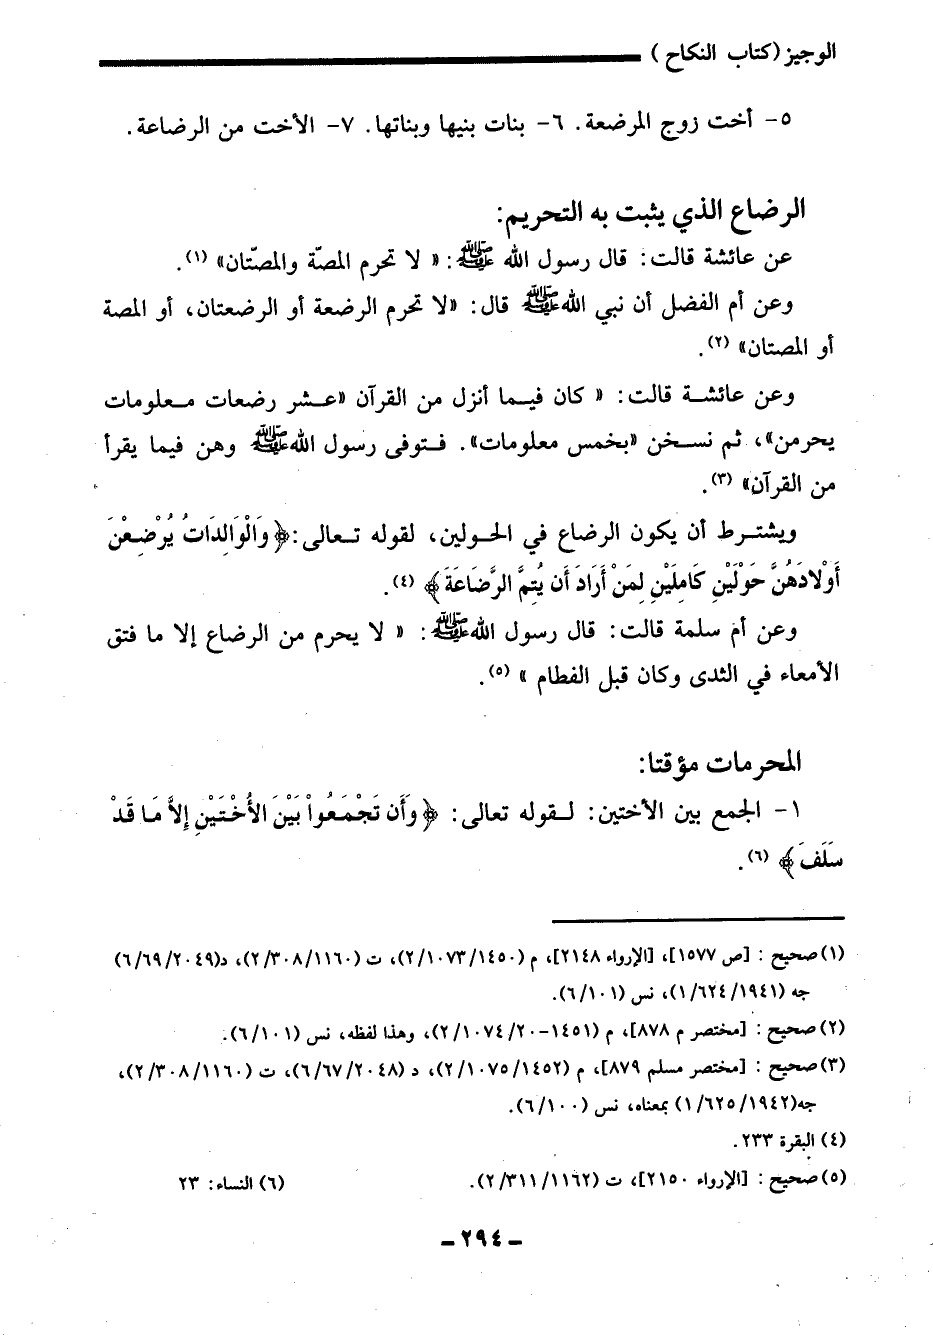 الوجيز (كتاب النكاح)
٥- أخت زوج المرضعة. ٦- بنات بنيها وبناتها. ٧- الأخت من الرضاعة.
الرضاع الذي يثبت به التحريم:
عن عائشة قالت: قال رسول الله ﷺ: « لا تحرم المصّة والمصّتان» (١).
وعن أم الفضل أن نبي الله ﷺ قال: «لا تحرم الرضعة أو الرضعتان، أو المصة
أو المصتان» (٢).
وعن عائشة قالت: « كان فيما أنزل من القرآن «عشر رضعات معلومات
يحرمن»، ثم نسخن «بخمس معلومات». فتوفى رسول الله ﷺ وهن فيما يقرأ
من القرآن» (٣).
ويشترط أن يكون الرضاع في الحولين، لقوله تعالى: ﴿وَالْوَالِدَاتُ يُرْضِعْنَ
أَوْلَادَهُنَّ حَوْلَيْنِ كَامِلَيْنِ لِمَنْ أَرَادَ أَن يُتِمَّ الرَّضَاعَةَ﴾ (٤).
وعن أم سلمة قالت: قال رسول الله ﷺ: « لا يحرم من الرضاع إلا ما فتق
الأمعاء في الثدى وكان قبل الفطام » (٥).
المحرمات مؤقتا:
١- الجمع بين الأختين: لقوله تعالى: ﴿وَأَن تَجْمَعُواْ بَيْنَ الأُخْتَيْنِ إِلاَّ مَا قَدْ
سَلَفَ﴾ (٦).
(١) صحيح : [ص ١٥٧٧]، [الإرواء ٢١٤٨]، م (٢/١٠٧٣/١٤٥٠)، ت (٢/٣٠٨/١١٦٠)، د(٦/٦٩/٢٠٤٩)
جه (١/٦٢٤/١٩٤١)، نس (٦/١٠١).
(٢) صحيح : [مختصر م ٨٧٨]، م (١٤٥١-٢/١٠٧٤/٢٠)، وهذا لفظه، نس (٦/١٠١).
(٣) صحيح : [مختصر مسلم ٨٧٩]، م (٢/١٠٧٥/١٤٥٢)، د (٦/٦٧/٢٠٤٨)، ت (٢/٣٠٨/١١٦٠)،
جه(١/٦٢٥/١٩٤٢) بمعناه، نس (٦/١٠٠).
(٤) البقرة ٢٣٣.
(٥) صحيح : [الإرواء ٢١٥٠]، ت (٢/٣١١/١١٦٢). (٦) النساء: ٢٣
- ٢٩٤ -